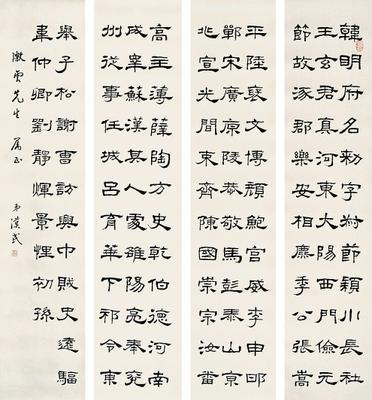 韓明府名勑字叔節穎川長社
王玄君真河東大陽西門儉元
節故涿郡樂安相廉季公張嵩
平陵裒文博顏鮑宮威李申邯
鄲宋廣原陵恭敬馬彭泰山京
兆宣光間束齊陳國崇宗汝番
高主薄薛陶方史乾伯德河南
成皋蘇漢其人處雒陽亮奉兗
州從事任城呂育華下祁令東
舉子松謝曹訪興中賊史遼驅
車仲卿劉靜煇景悝初孫
澂雲先生屬正 弟漢民